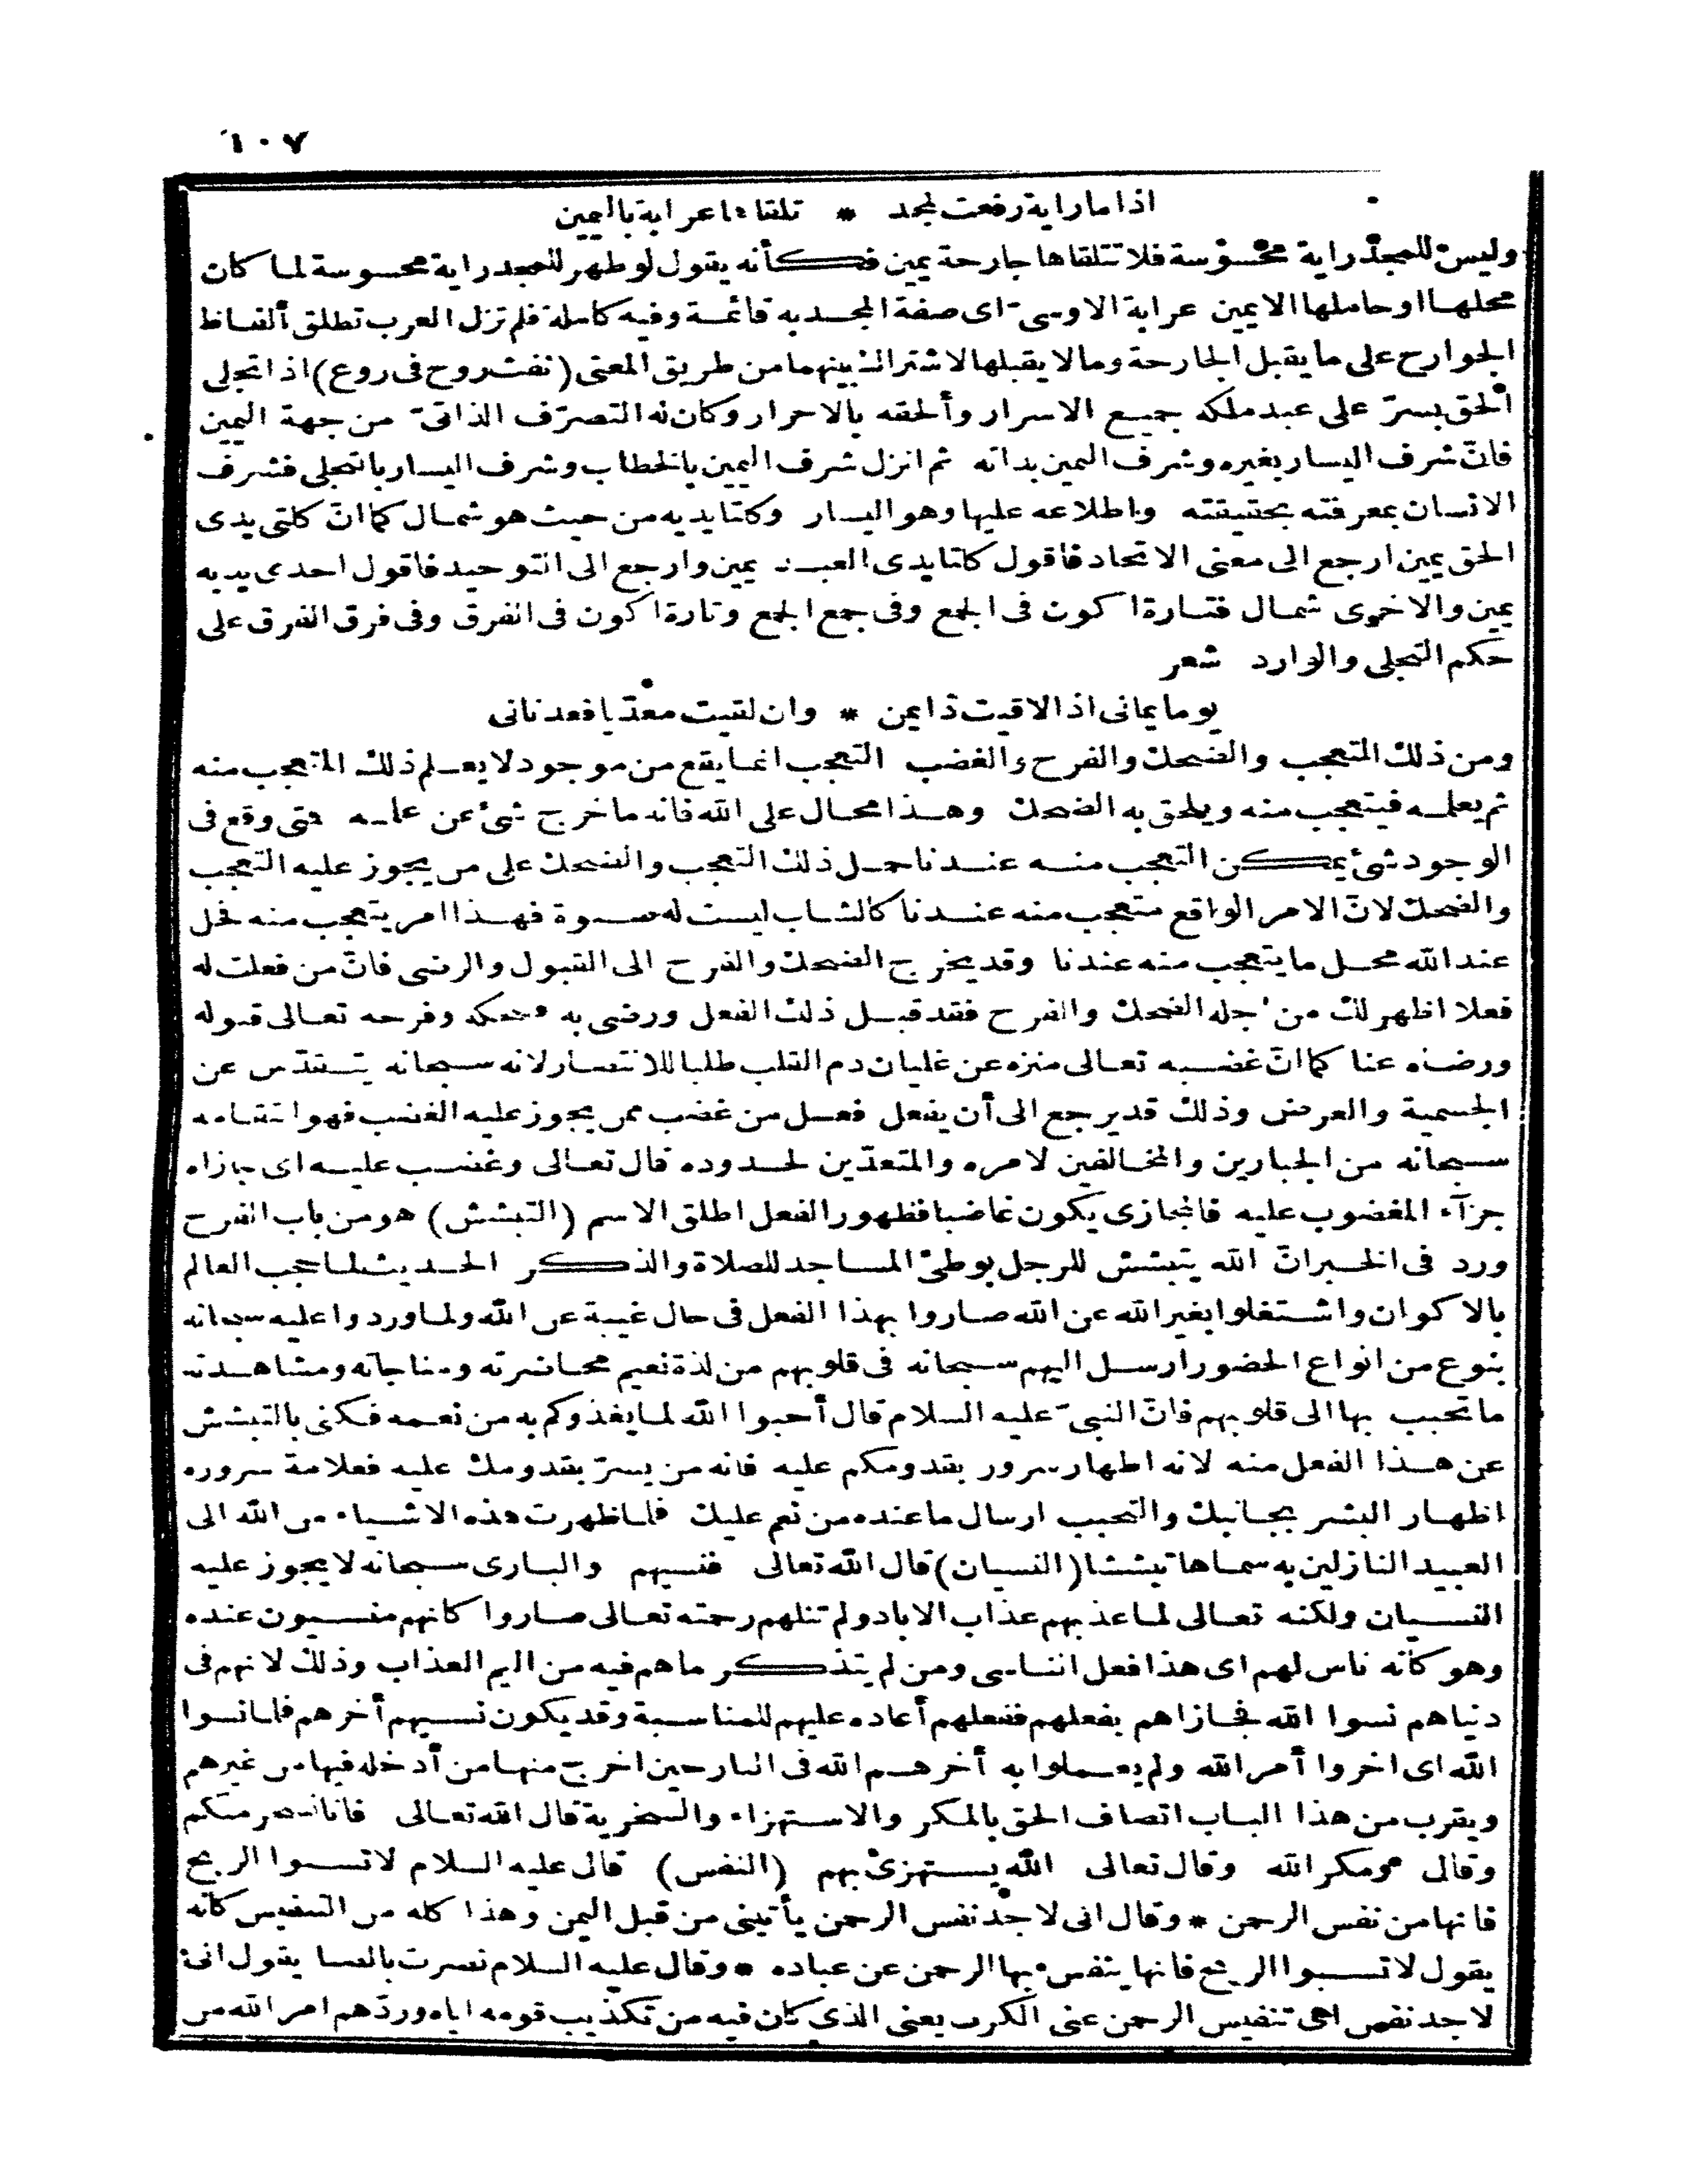 ١٠٧
اذا ما راية رفعت لمجد * تلقاها عرابة باليمين
وليس للمجد راية محسوسة فلا تتلقاها جارحة يمين فكأنه يقول لو ظهر للمجد راية محسوسة لما كان
محلها او حاملها الا يمين عرابة الاوسى اى صفة المجد به قائمة وفيه كاملة فلم تزل العرب تطلق ألفاظ
الجوارح على ما يقبل الجارحة وما لا يقبلها لاشتراك بينهما من طريق المعنى (نفث روح فى روع) اذا تجلى
الحق بسرّ على عبد ملكه جميع الاسرار وألحقه بالاحرار وكان له التصرّف الذاتىّ من جهة اليمين
فانّ شرف اليسار بغيره وشرف اليمين بذاته ثم انزل شرف اليمين بالخطاب وشرف اليسار بالتجلى فشرف
الانسان بمعرفته بحقيقته واطلاعه عليها وهو اليسار وكلتا يديه من حيث هو شمال كما انّ كلتى يدى
الحق يمين ارجع الى معنى الاتحاد فاقول كلتا يدى العبد يمين وارجع الى التوحيد فاقول احدى يديه
يمين والاخرى شمال فتارة اكون فى الجمع وفى جمع الجمع وتارة اكون فى الفرق وفى فرق الفرق على
حكم التجلى والوارد شعر
يوما يمانى اذا لاقيت ذا يمن * وان لقيت معدّيا فعدنانى
ومن ذلك التعجب والضحك والفرح والغضب التعجب انما يقع من موجود لا يعلم ذلك المتعجب منه
ثم يعلمه فيتعجب منه ويلحق به الضحك وهذا محال على الله فانه ما خرج شئ عن علمه فتى وقع فى
الوجود شئ يمكن التعجب منه عندنا حمل ذلك التعجب والضحك على من يجوز عليه التعجب
والضحك لانّ الامر الواقع متعجب منه عندنا كالشاب ليست له صبوة فهذا امر يتعجب منه فحل
عند الله محل ما يتعجب منه عندنا وقد يخرج الضحك والفرح الى القبول والرضى فانّ من فعلت له
فعلا اظهر لك من اجله الضحك والفرح فقد قبل ذلك الفعل ورضى به فضحكه وفرحه تعالى قبوله
ورضاه عنا كما انّ غضبه تعالى منزه عن غليان دم القلب طلبا للانتصار لانه سبحانه يتقدّس عن
الجسمية والعرض وذلك قد يرجع الى أن يفعل فعل من غضب ممن يجوز عليه الغضب فهو انتقامه
سبحانه من الجبارين والمخالفين لامره والمتعدّين لحدوده قال تعالى وغضب عليه اى جازاه
جزآء المغضوب عليه فالمجازى يكون غاضبا فظهور الفعل اطلق الاسم (التبشش) هو من باب الفرح
ورد فى الخبر انّ الله يتبشش للرجل يوطئ المساجد للصلاة والذكر الحديث لما حجب العالم
بالاكوان واشتغلوا بغير الله عن الله صاروا بهذا الفعل فى حال غيبة عن الله ولما وردوا عليه سبحانه
بنوع من انواع الحضور ارسل اليهم سبحانه فى قلوبهم من لذة نعيم محاضرته ومناجاته ومشاهدته
ما تحبب بها الى قلوبهم فانّ النبىّ عليه السلام قال أحبوا الله لما يغذوكم به من نعمه فكنى بالتبشش
عن هذا الفعل منه لانه اظهار سرور بقدومكم عليه فانه من يسرّ بقدومك عليه فعلامة سروره
اظهار البشر بجانبك والتحبب ارسال ما عنده من نعم عليك فلما ظهرت هذه الاشياء من الله الى
العبيد النازلين به سماها تبششا (النسيان) قال الله تعالى فنسيهم والبارى سبحانه لا يجوز عليه
النسيان ولكنه تعالى لما عذبهم عذاب الاباد ولم تنلهم رحمته تعالى صاروا كانهم منسيون عنده
وهو كانّه ناس لهم اى هذا فعل الناسى ومن لم يتذكر ما هم فيه من اليم العذاب وذلك لانهم فى
دنياهم نسوا الله فجازاهم بفعلهم ففعلهم أعاده عليهم للمناسبة وقد يكون نسيهم أخرهم فلما نسوا
الله اى اخروا أمر الله ولم يعملوا به أخرهم الله فى النار حين اخرج منها من أدخله فيها من غيرهم
ويقرب من هذا الباب اتصاف الحق بالمكر والاستهزاء والسخرية قال الله تعالى فانا نسخر منكم
وقال ومكر الله وقال تعالى الله يستهزئ بهم (النفس) قال عليه السلام لا تسبوا الريح
فانها من نفس الرحمن * وقال انى لاجد نفس الرحمن يأتينى من قبل اليمن وهذا كله من التنفيس كانّه
يقول لا تسبوا الريح فانها ينفس بها الرحمن عن عباده * وقال عليه السلام نصرت بالصبا يقول انى
لاجد نفس اى تنفيس الرحمن عنى الكرب يعنى الذى كان فيه من تكذيب قومه اياه وردّهم امر الله من